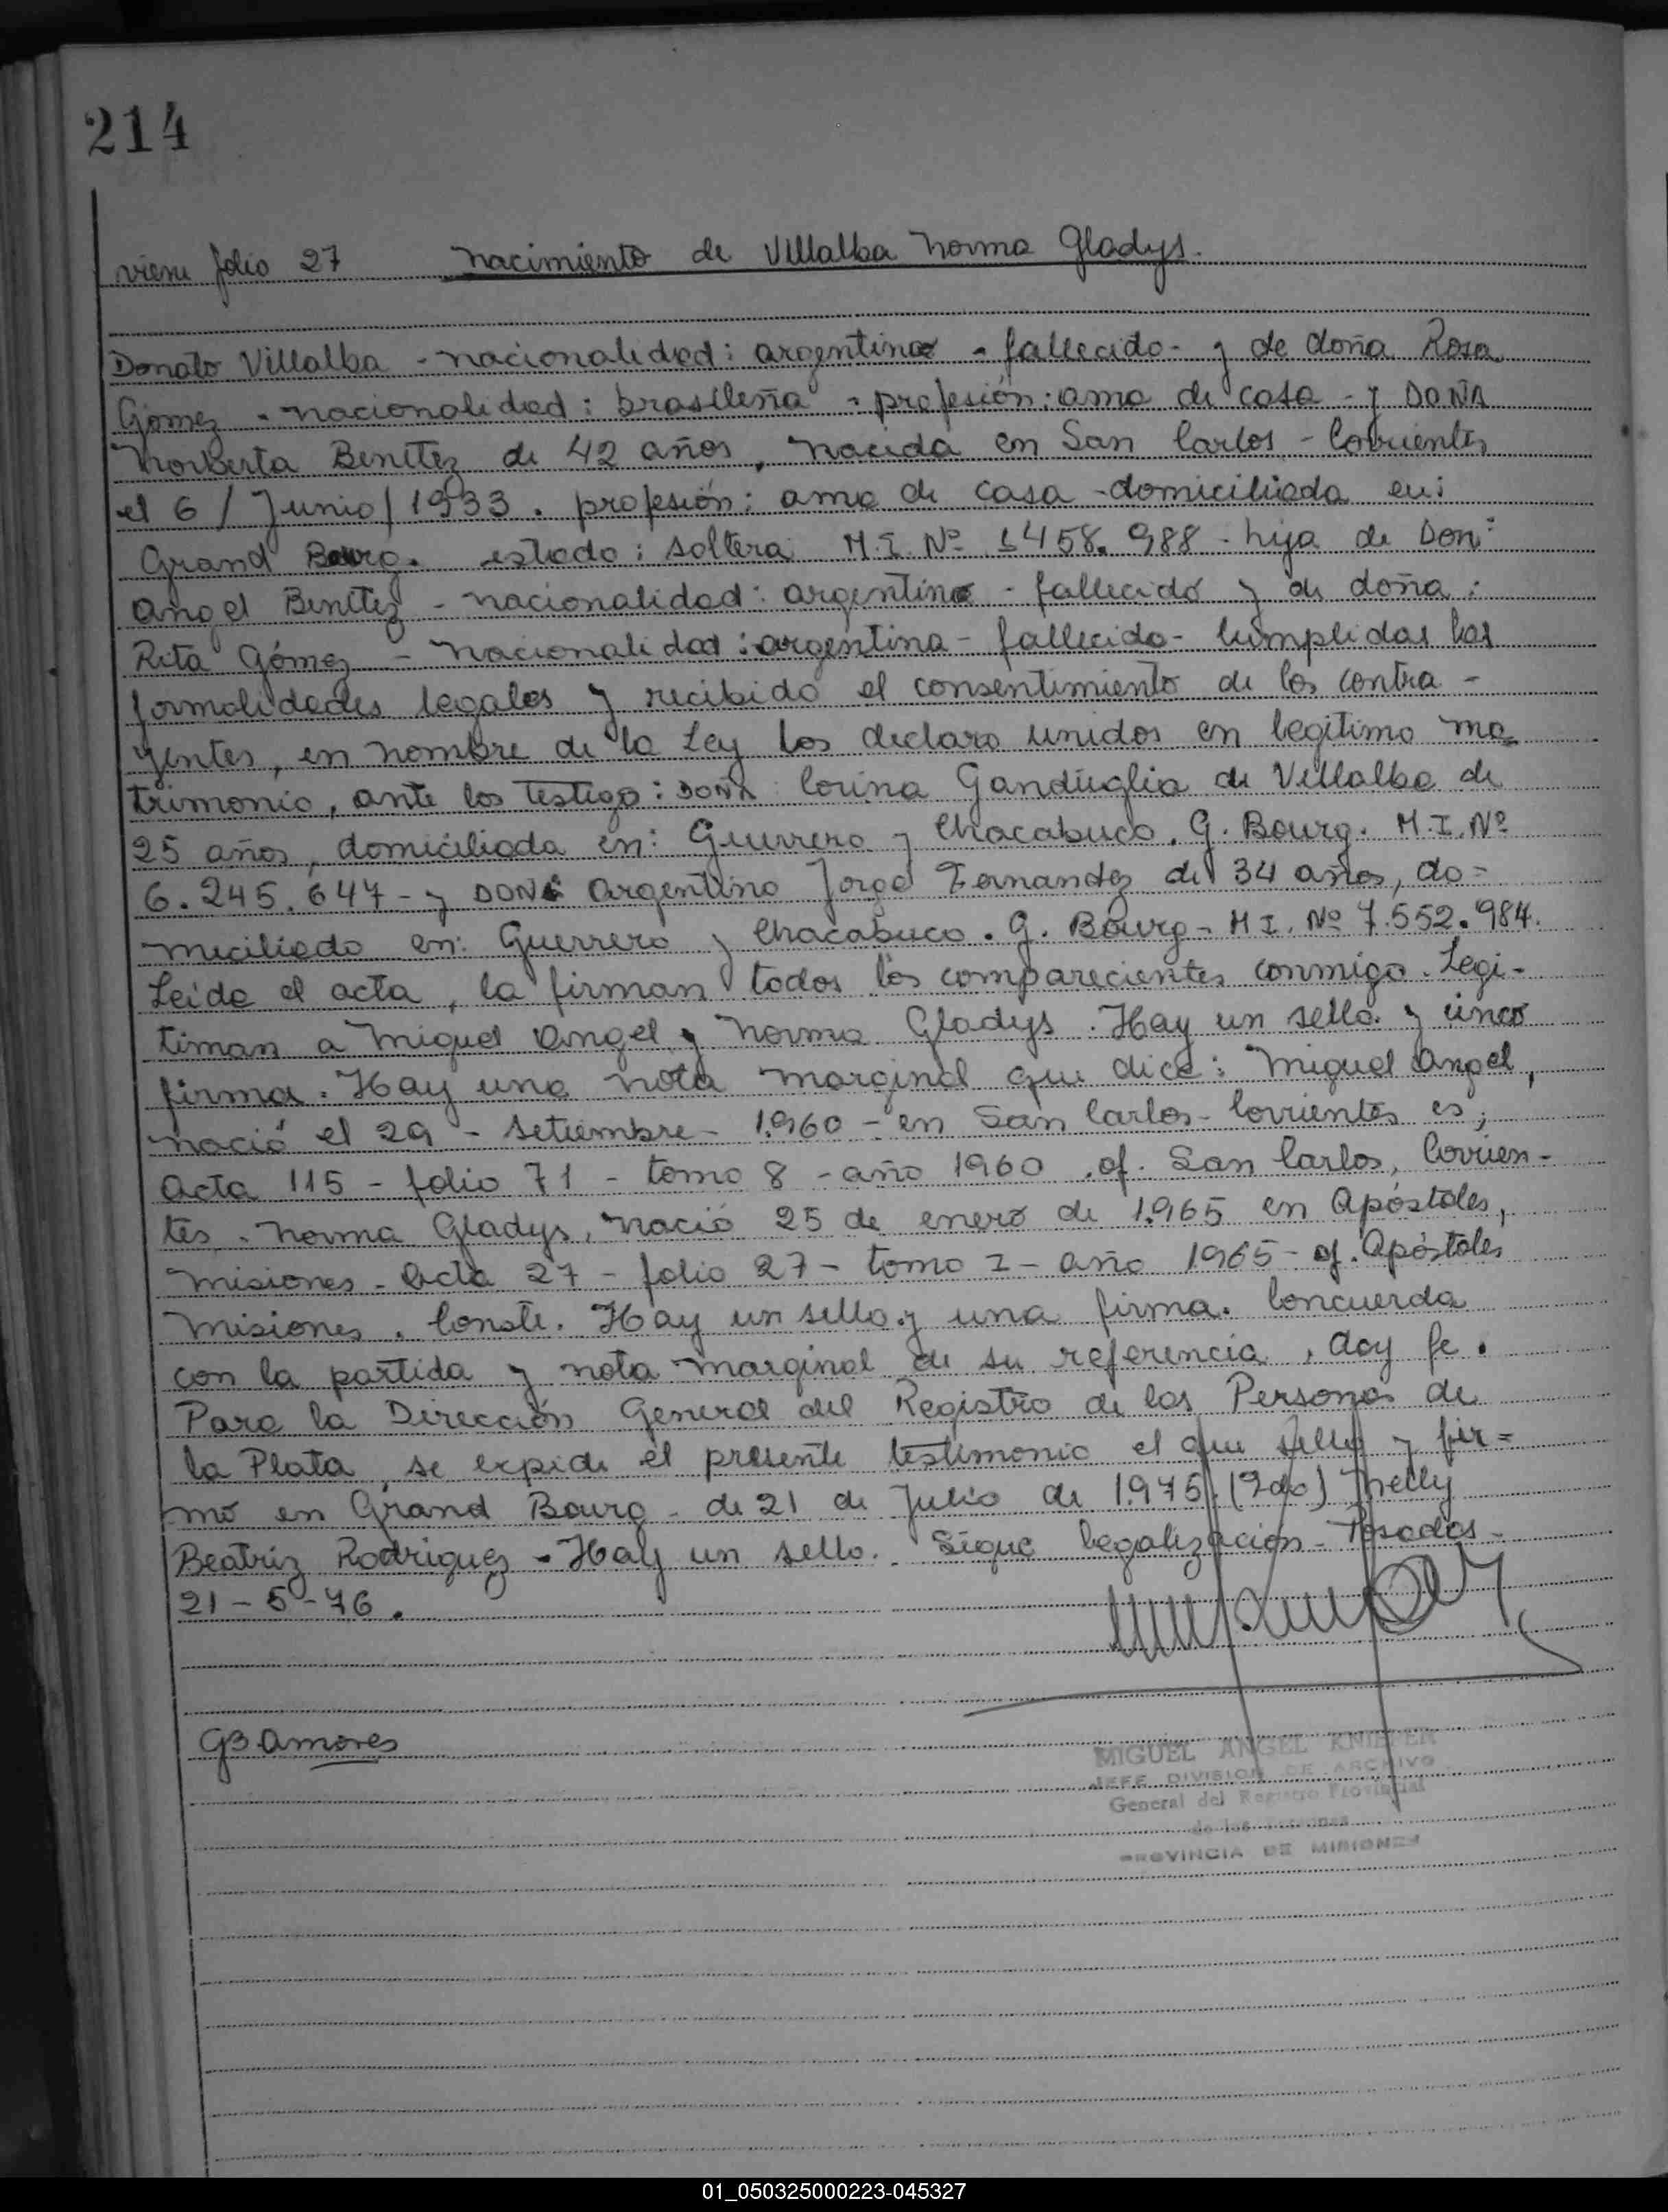 214
viene folio 27 nacimiento de Villalba Norma Gladys.
Donato Villalba - nacionalidad: argentino - fallecido - y de doña Rosa
Gómez - nacionalidad: brasileña - profesión: ama de casa - y DOÑA
Norberta Benitez de 42 años, nacida en San Carlos - Corrientes
el 6 / Junio / 1933. profesión: ama de casa - domiciliada en:
Grand Bourg. estado: soltera M.I. Nº 1458.988 - hija de Don:
Angel Benítez - nacionalidad: argentino - fallecido y de doña:
Rita Gómez - nacionalidad: argentina - fallecida - Cumplidas las
formalidades legales y recibido el consentimiento de los contra -
yentes, en nombre de la Ley los declaro unidos en legítimo ma=
trimonio, ante los testigo: DOÑA Corina Gandüglia de Villalba de
25 años, domiciliada en: Guerrero y Chacabuco. G. Bourg. M.I. Nº
6.245.647 - y DON: Argentino Jorge Fernandez de 34 años, do=
miciliado en: Guerrero y Chacabuco. G. Bourg - M I. Nº 7.552.984.
Leída el acta, la firman todos los comparecientes conmigo. Legi-
timan a Miguel Angel y Norma Gladys. Hay un sello y cinco
firma. Hay una nota marginal que dice: Miguel Angel,
nació el 29 - setiembre - 1.960 - en San Carlos - Corrientes es;
Acta 115 - folio 71 - tomo 8 - año 1960. of. San Carlos, Corrien-
tes. Norma Gladys, nació 25 de enero de 1.965 en Apóstoles,
Misiones - Acta 27 - folio 27 - tomo I - año 1965 - of. Apóstoles
Misiones. Conste. Hay un sello y una firma. Concuerda
con la partida y nota marginal de su referencia, doy fe.
Para la Dirección General del Registro de las Personas de
la Plata, se expide el presente testimonio el que sello y fir=
mo en Grand Bourg - de 21 de Julio de 1.975. (Fdo) Nelly
Beatriz Rodriguez - Hay un sello. Sigue legalización - Posadas -
21 - 5 - 76.
GB Amores
MIGUEL ANGEL KNIEPER
JEFE DIVISION DE ARCHIVO
General del Registro Provincial
de las Personas
PROVINCIA DE MISIONES
01_050325000223-045327